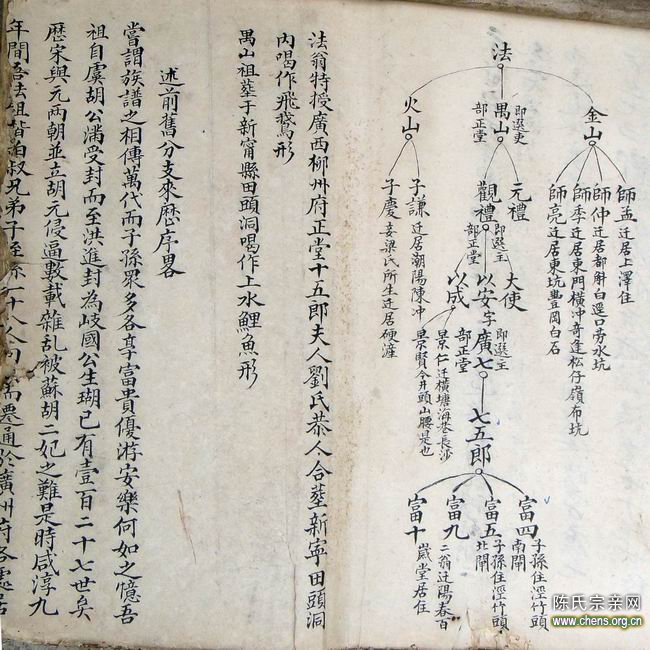 法
金山
師孟迁居上澤住
師仲迁居都斛白逕口勞水坑
師季迁居東門橫冲奇逢松仔嶺布坑
師亮迁居東坑豊岡白石
禺山
即選吏
部正堂
元禮
觀禮
即選主
部正堂
大使
以安字廣七
即選主
部正堂
以成
景仁迁橫塘海巷長沙
景賢今井頭山腰是也
七五郎
富四
子孫住涇竹頭
南閘
富五
子孫住涇竹頭
北閘
富九
二翁迁陽春百
富十
嵗堂居住
火山
子謙迁居潮陽陳冲
子慶妾梁氏所生迁居硬漄
法翁特授廣西柳州府正堂十五郎夫人劉氏恭人合塟新寜田頭洞
內喝作飛鵞形
禺山祖塟于新甯縣田頭洞喝作上水鯉魚形
述前舊分支來歷序畧
嘗謂族譜之相傳萬代而子孫眾多各享富貴優游安樂何如之憶吾
祖自虞胡公滿受封而至洪進封為岐國公生瑚已有壹百二十七世矣
歷宋與元兩朝並立胡元侵逼數載雜乱被蘇胡二妃之難是時咸淳九
年間吾法祖皆伯叔兄弟子至孫一十八人
通於廣州府各處
陈氏宗亲网
www.chens.org.cn